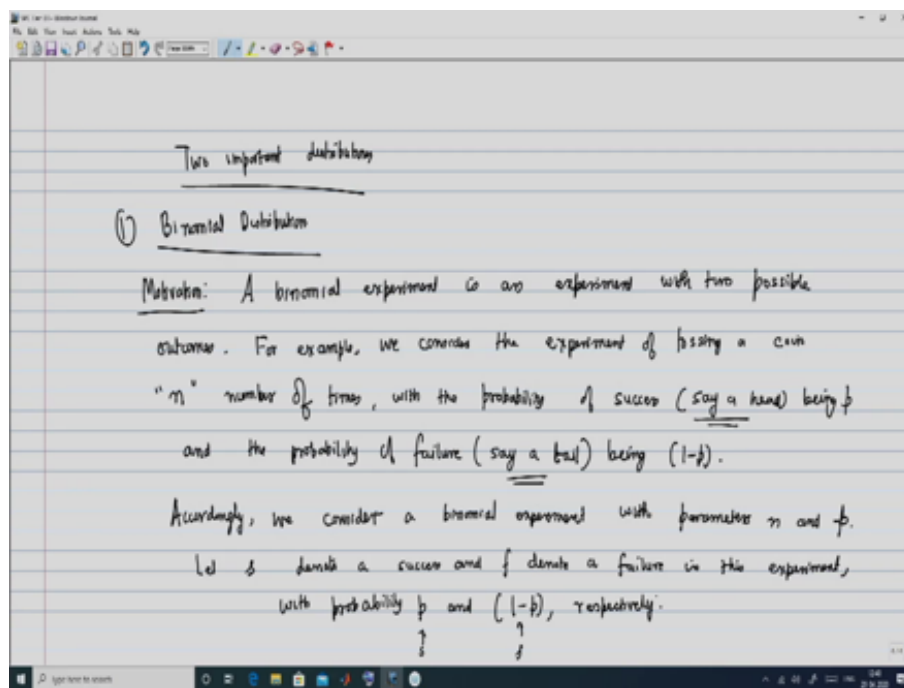 Two important distributions
① Binomial Distribution
Motivation: A binomial experiment is an experiment with two possible
outcomes. For example, we consider the experiment of tossing a coin
"n" number of times, with the probability of success (say a head) being p
and the probability of failure (say a tail) being (1-p).
Accordingly, we consider a binomial experiment with parameters n and p.
Let s denote a success and f denote a failure in this experiment,
with probability p and (1-p), respectively.
↑ ↑
s f
Type here to search